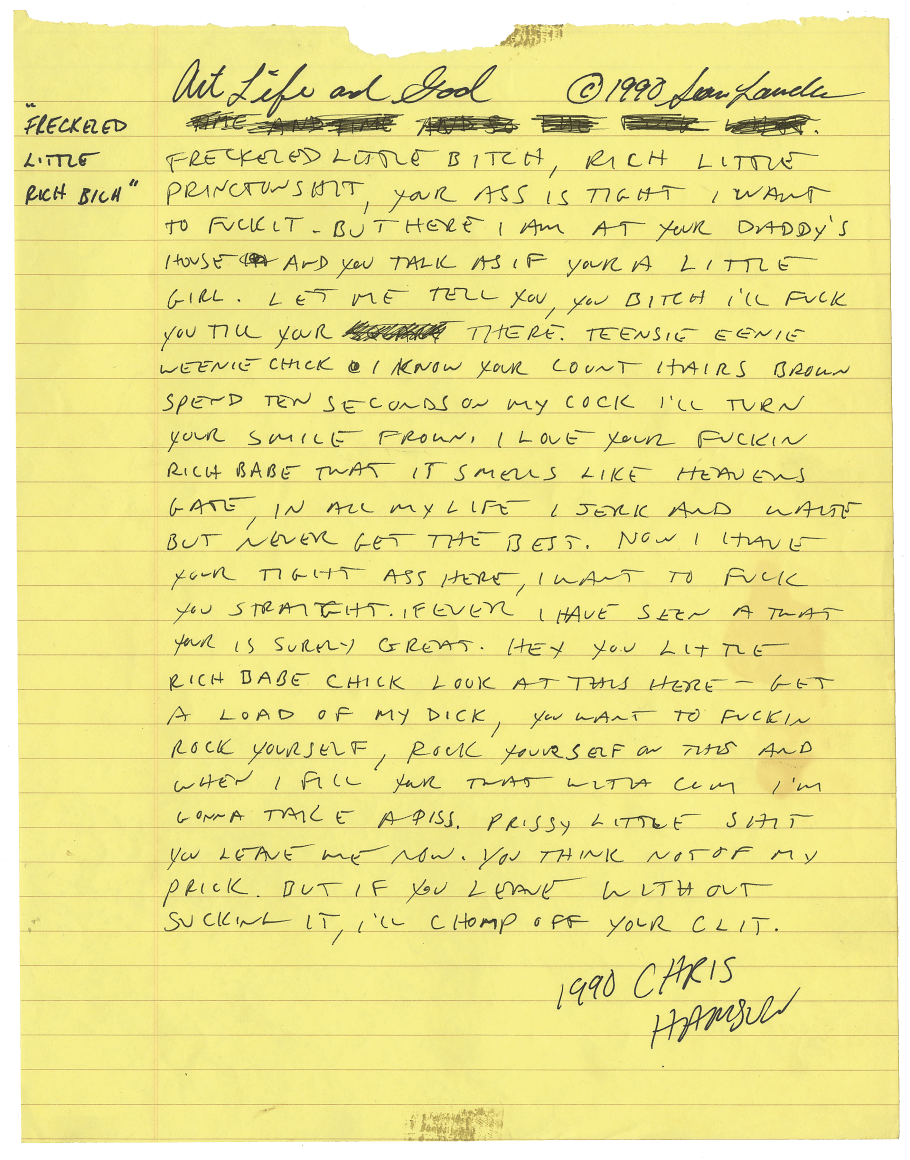 Art Life and God ©1990 Sean Landers
"FRECKELED
LITTLE
RICH BICH"
FRECKELED LITTLE BITCH, RICH LITTLE
PRINCTON SHIT, YOUR ASS IS TIGHT I WANT
TO FUCK IT - BUT HERE I AM AT YOUR DADDY'S
HOUSE AND YOU TALK AS IF YOUR A LITTLE
GIRL. LET ME TELL YOU, YOU BITCH I'LL FUCK
YOU TILL YOUR THERE. TEENSIE EENIE
WEENIE CHICK I KNOW YOUR COUNT HAIRS BROWN
SPEND TEN SECONDS ON MY COCK I'LL TURN
YOUR SMILE FROWN. I LOVE YOUR FUCKIN
RICH BABE TWAT IT SMELLS LIKE HEAVENS
GATE, IN ALL MY LIFE I JERK AND WAITE
BUT NEVER GET THE BEST. NOW I HAVE
YOUR TIGHT ASS HERE, I WANT TO FUCK
YOU STRAIGHT. IF EVER I HAVE SEEN A TWAT
YOUR IS SURLY GREAT. HEY YOU LITTLE
RICH BABE CHICK LOOK AT THIS HERE - GET
A LOAD OF MY DICK, YOU WANT TO FUCKIN
ROCK YOURSELF, ROCK YOURSELF ON THIS AND
WHEN I FILL YOUR TWAT WITH CUM I'M
GONNA TAKE A PISS. PRISSY LITTLE SHIT
YOU LEAVE ME NOW. YOU THINK NOT OF MY
PRICK. BUT IF YOU LEAVE WITHOUT
SUCKING IT, I'LL CHOMP OFF YOUR CLIT.
1990 CHRIS
HAMSON